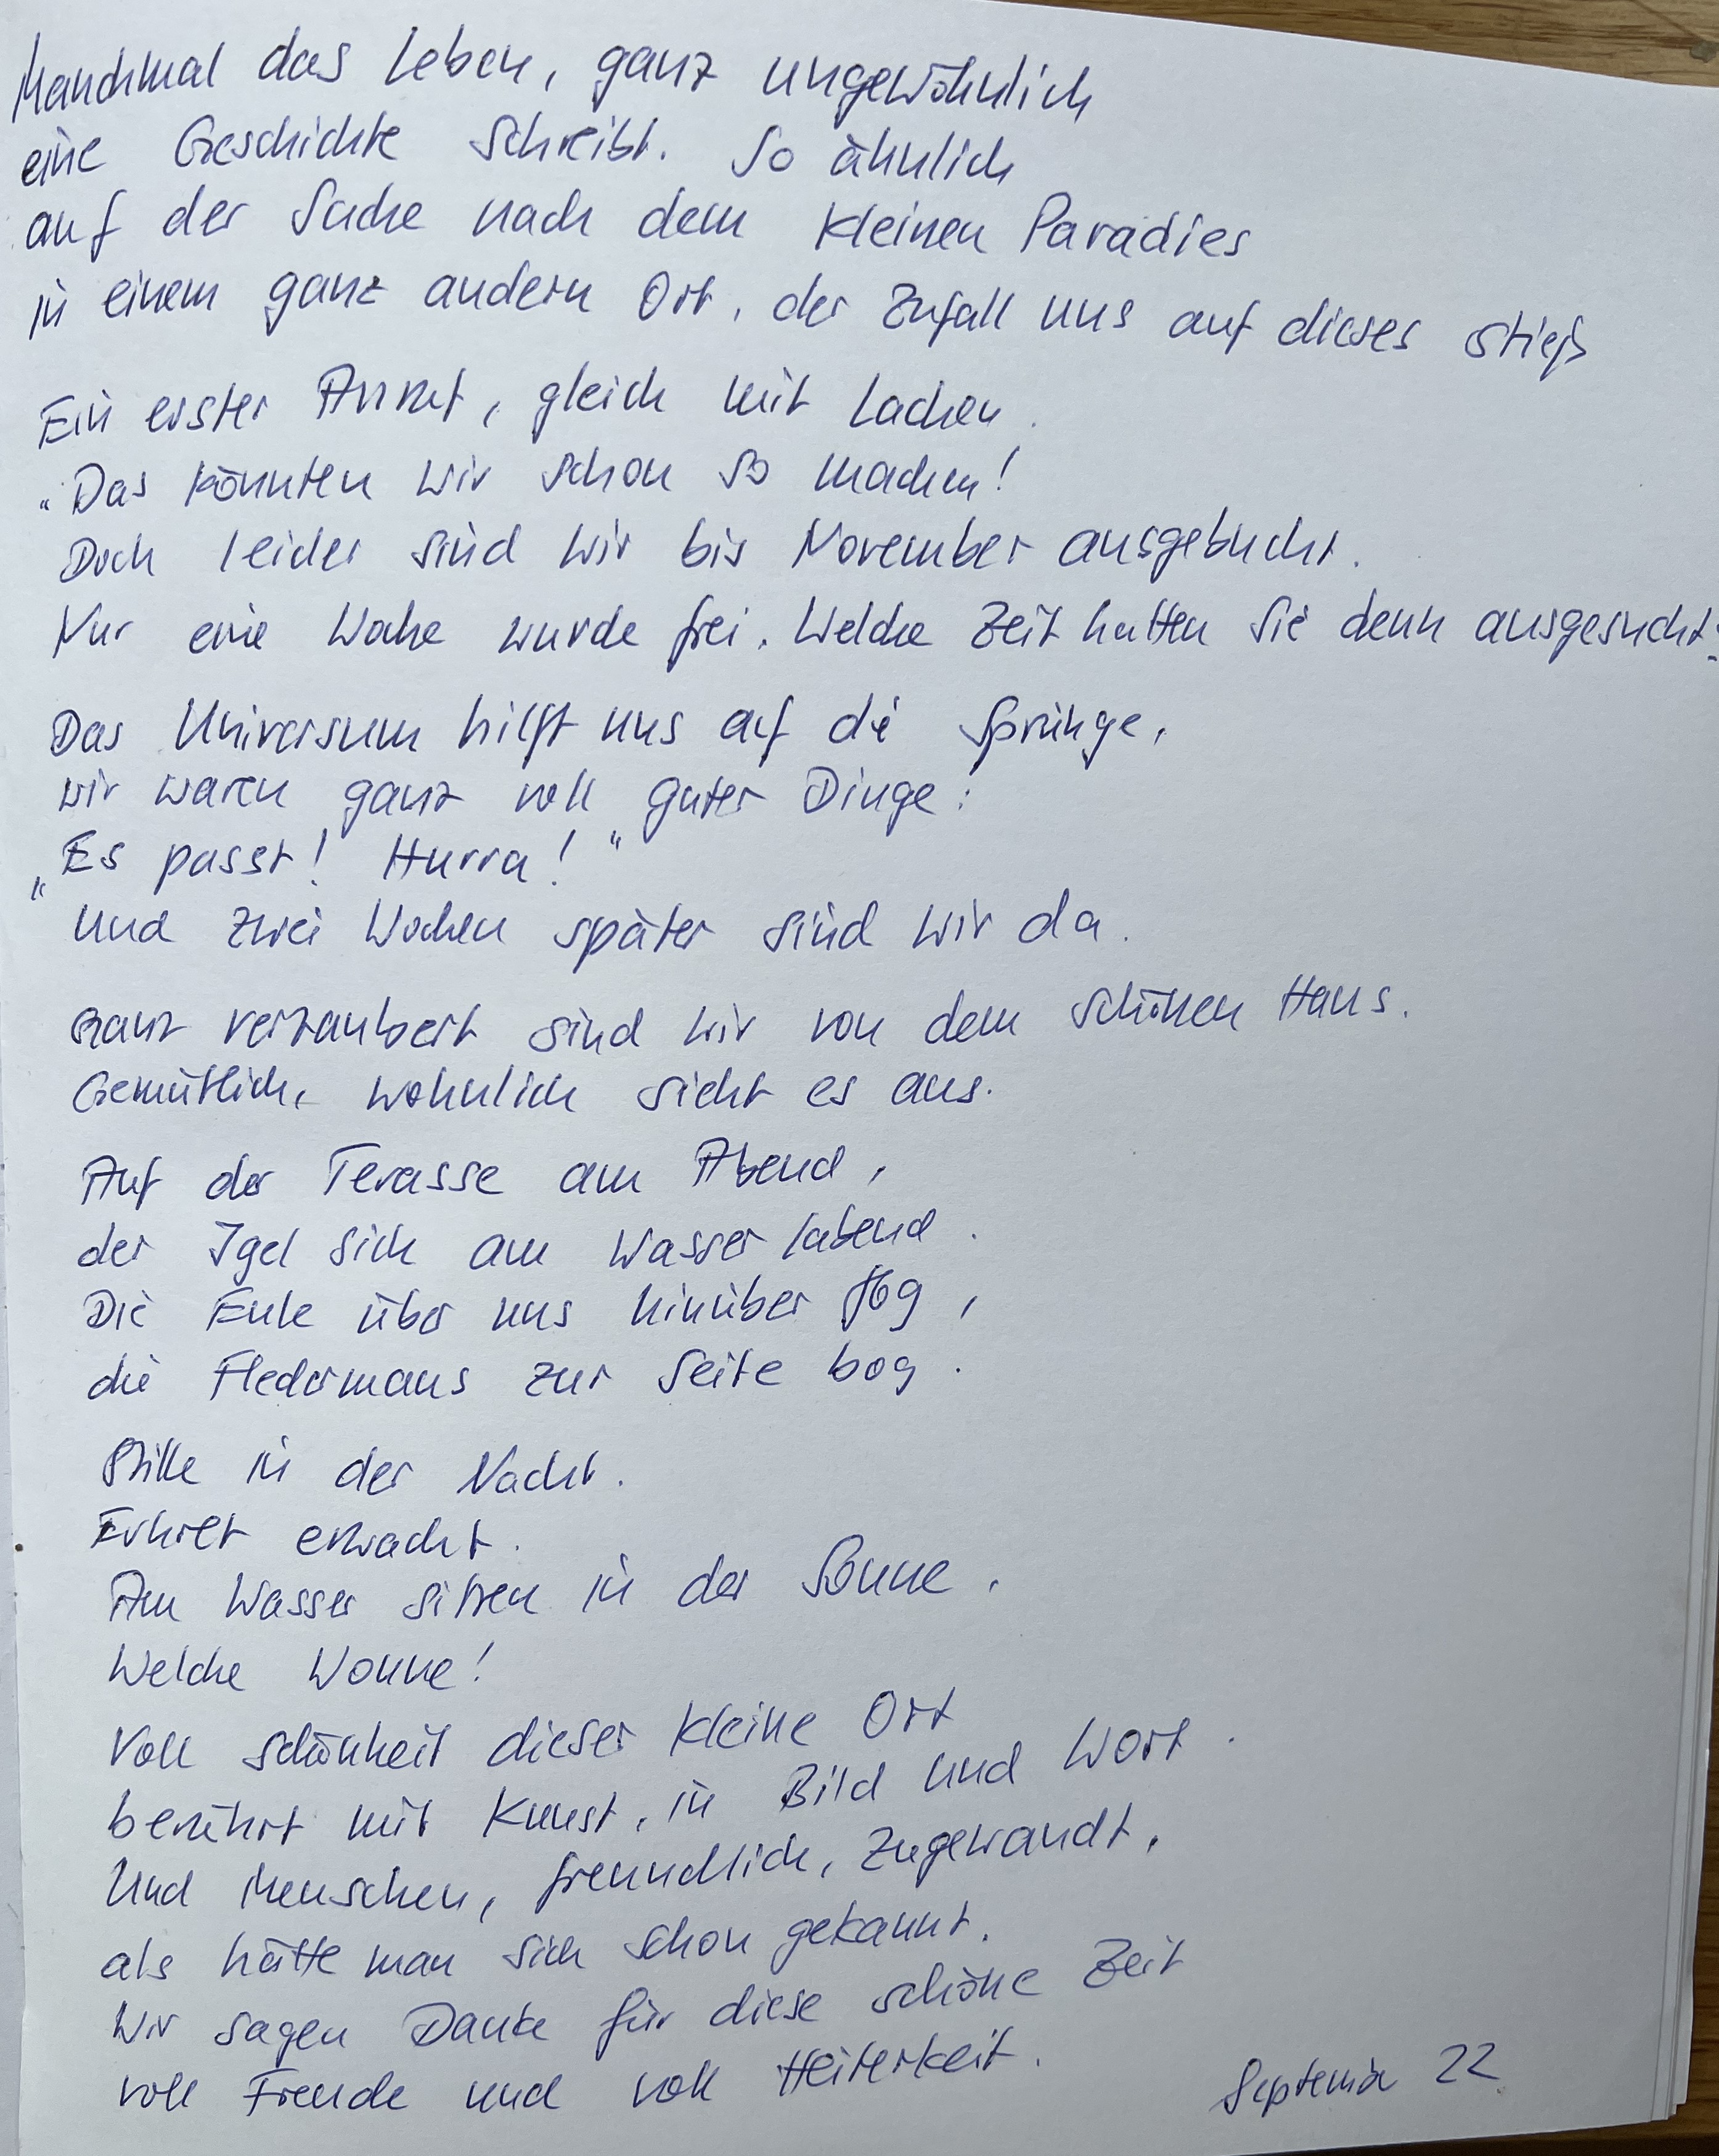 Manchmal das Leben, ganz ungewöhnlich
eine Geschichte schreibt. So ähnlich
auf der Suche nach dem kleinen Paradies
in einem ganz andern Ort, der Zufall uns auf dieses stieß
Ein erster Anruf, gleich mit Lachen.
"Das könnten wir schon so machen!
Doch leider sind wir bis November ausgebucht.
Nur eine Woche wurde frei. Welche Zeit hatten Sie denn ausgesucht?
Das Universum hilft uns auf die Sprünge,
wir waren ganz voll guter Dinge:
„Es passt! Hurra!"
Und zwei Wochen später sind wir da.
Ganz verzaubert sind wir von dem schönen Haus.
Gemütlich, wohnlich sieht es aus.
Auf der Terasse am Abend,
der Igel sich am Wasser labend.
Die Eule über uns hinüber flog,
die Fledermaus zur Seite bog.
Stille in der Nacht.
Erholt erwacht.
Am Wasser sitzen in der Sonne,
Welche Wonne!
Voll Schönheit dieser kleine Ort
berührt mit Kunst, in Bild und Wort.
Und Menschen, freundlich, zugewandt,
als hätte man sich schon gekannt.
Wir sagen Danke für diese schöne Zeit
voll Freude und voll Heiterkeit.
September 22